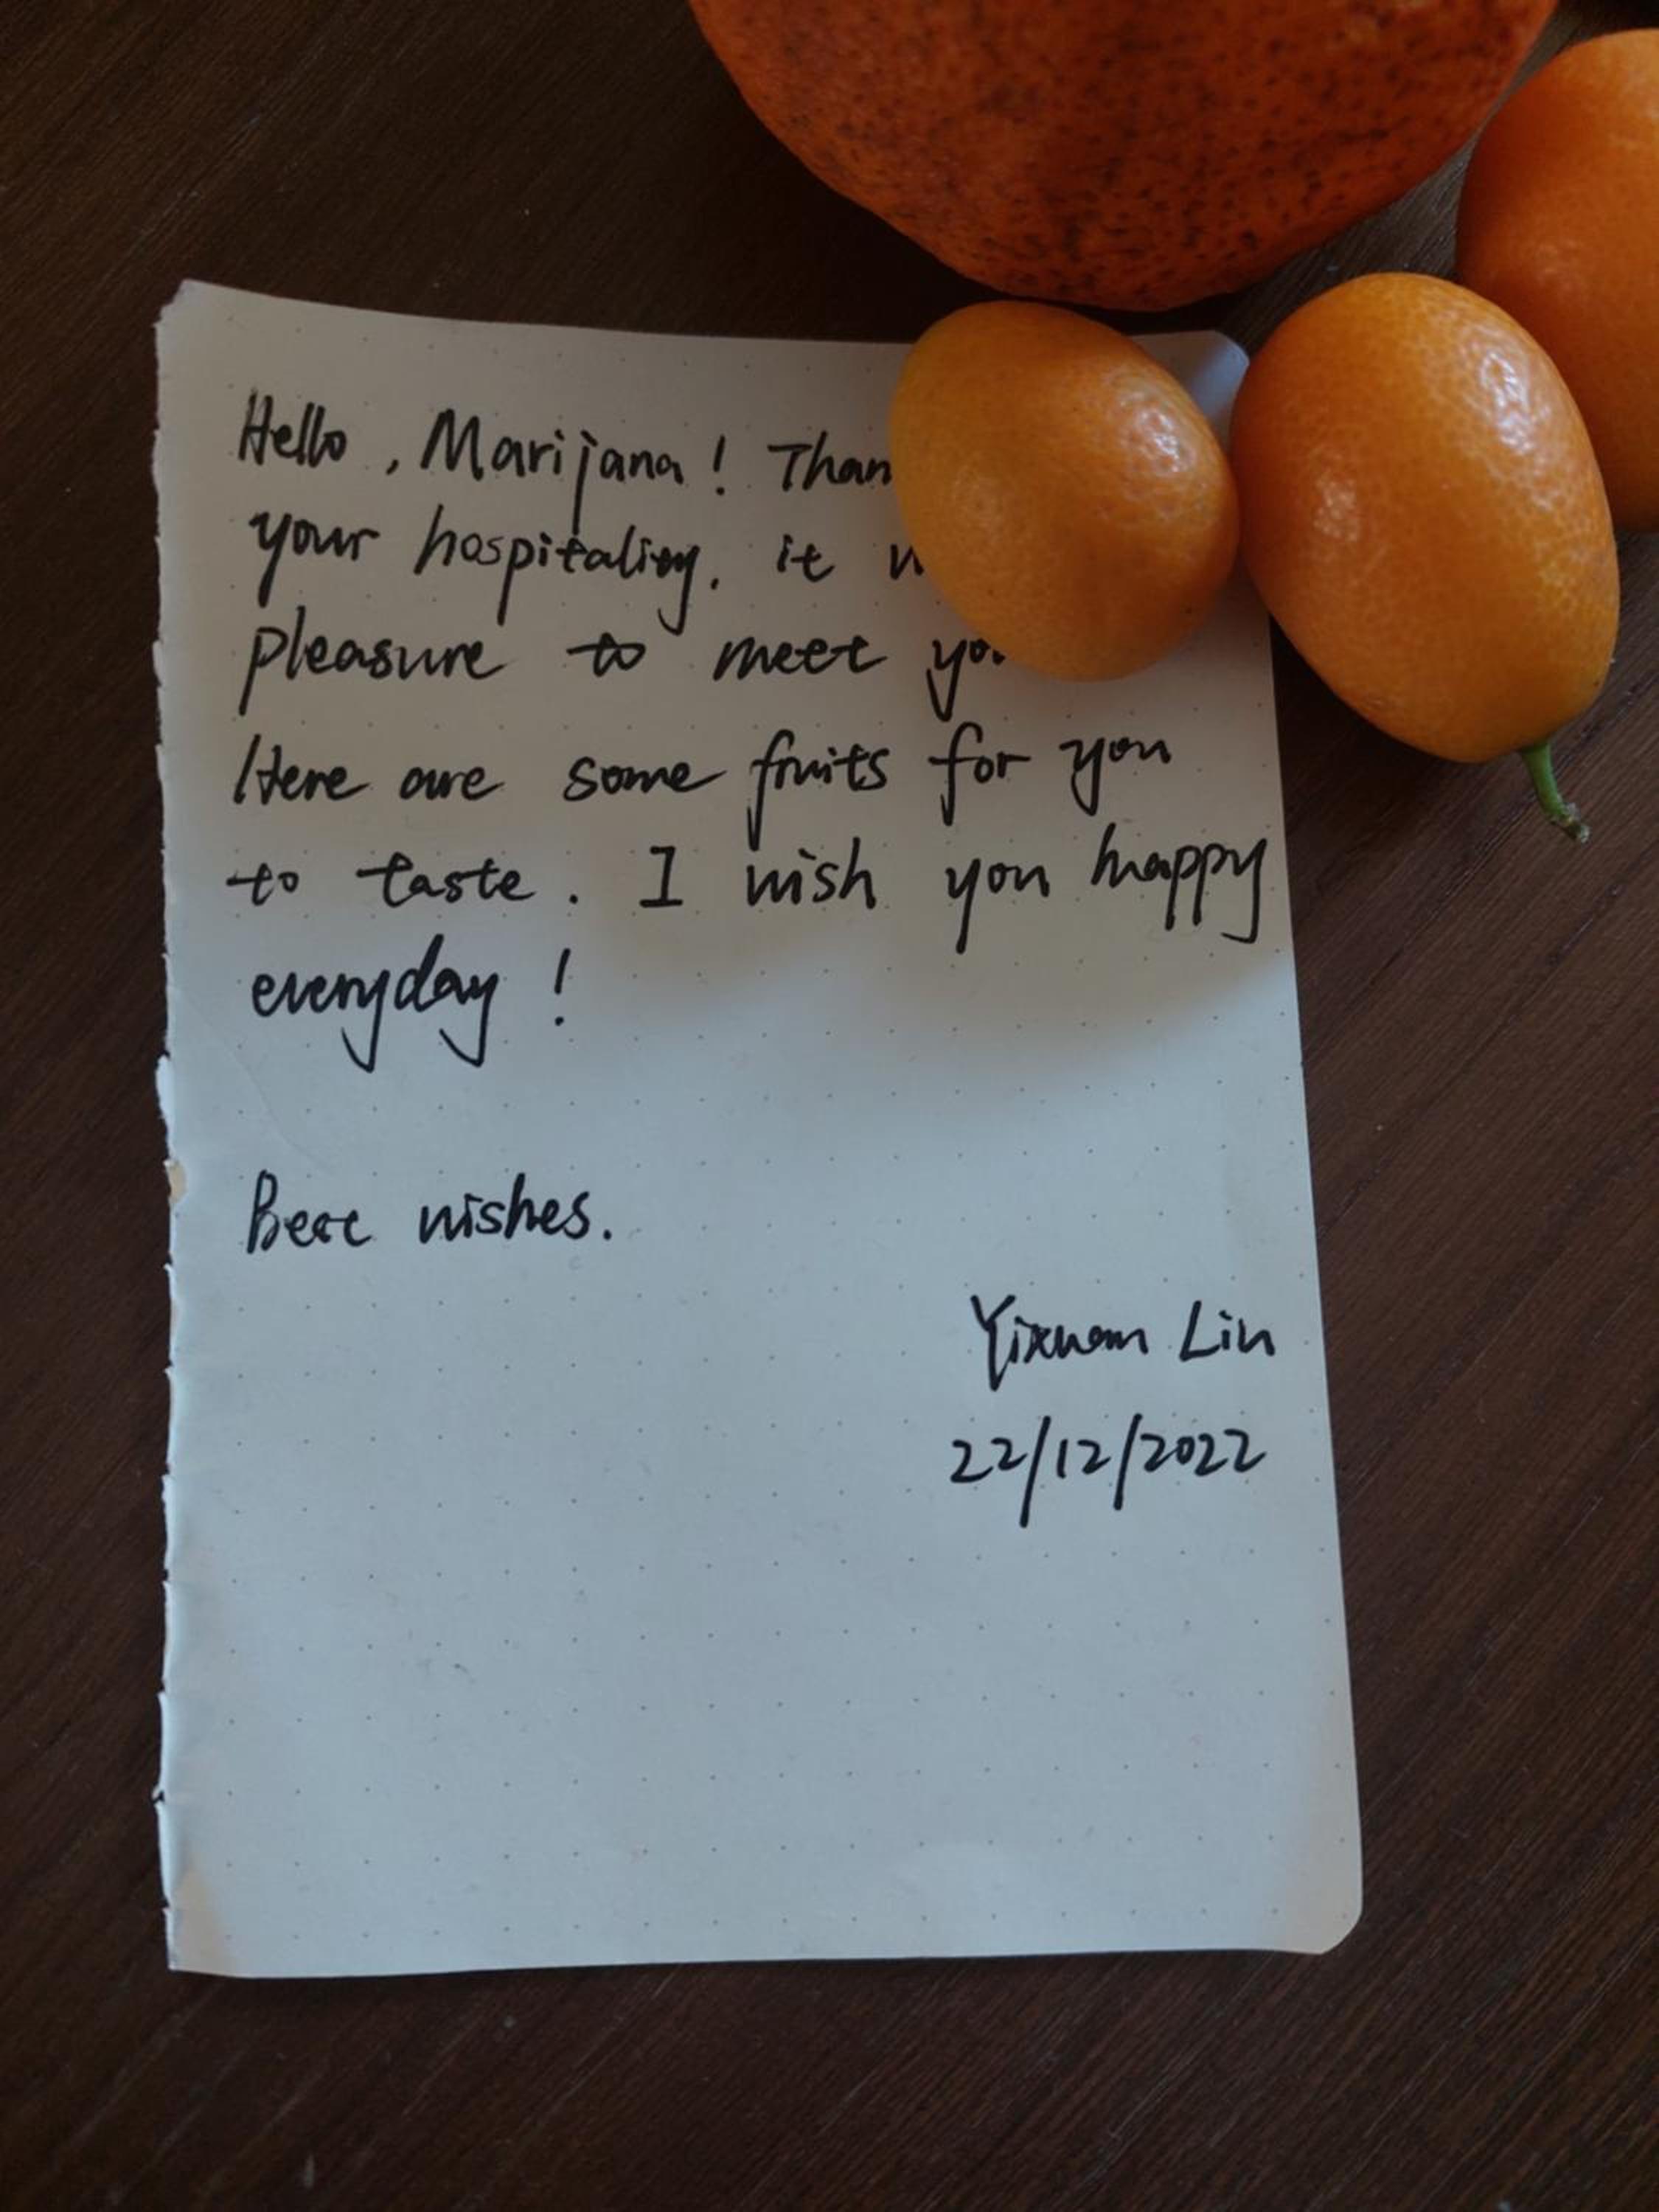 Hello, Marijana! Than
your hospitality. it w
pleasure to meet you
Here are some fruits for you
to taste. I wish you happy
everyday!
Best wishes.
Yixuan Lin
22/12/2022